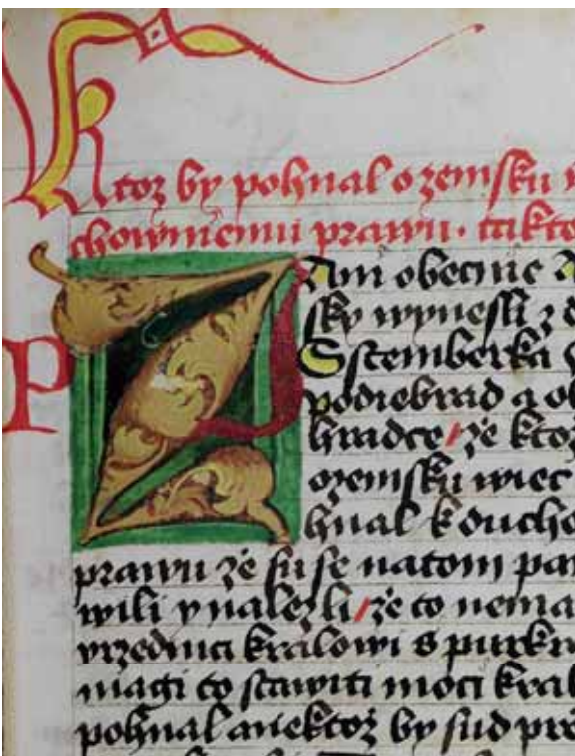 Ktoz by pohnal o zemsku w
chowniemu prawu. takto
P
Zam obecnie
sky wynesli z
Sstemberka
podiebrad a ob
hradce / že ktoz
ozemsku wiec
hnal k ducho
prawu že su se natom pa
wili ynalezli / že to nema
vrzednici kralowi s purkra
magi to stawiti moci kral
pohnal anektož by sud pre